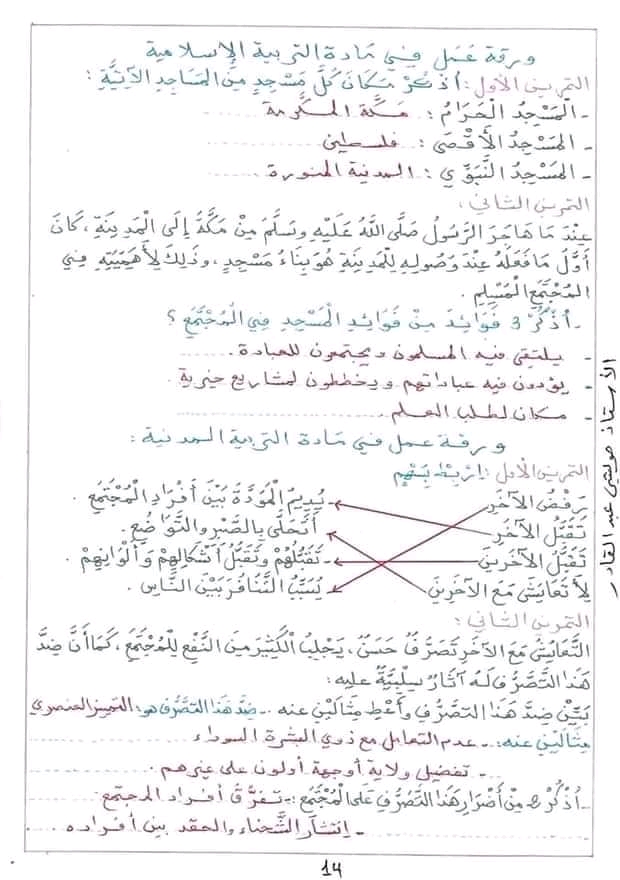 ورقة عمل في مادة التربية الإسلامية
التمرين الأول: أذكر مكان كل مسجد من المساجد الآتية:
- المسجد الحرام: مكة المكرمة
- المسجد الأقصى: فلسطين
- المسجد النبوي: المدينة المنورة
التمرين الثاني:
عندما هاجر الرسول صلى الله عليه وسلم من مكة إلى المدينة، كان
أول ما فعله عند وصوله للمدينة هو بناء مسجد، وذلك لأهميته في
المجتمع المسلم.
- أذكر 3 فوائد من فوائد المسجد في المجتمع؟
- يلتقي فيه المسلمون ويجتمعون للعبادة.
- يؤدون فيه عباداتهم ويخططون لمشاريع خيرية
- مكان لطلب العلم.
ورقة عمل في مادة التربية المدنية:
التمرين الأول: اربط بسهم
رفض الآخر - يديم المودة بين أفراد المجتمع.
تقبل الآخر - أتحلى بالصبر والتواضع.
تقبل الآخرين - تقبلهم وتقبل أشكالهم وألوانهم.
لأتعايش مع الآخرين - يسبب التنافر بين الناس.
التمرين الثاني:
التعايش مع الآخر تصرف حسن، يجلب الكثير من النفع للمجتمع، كما أن ضد
هذا التصرف له آثار سلبية عليه:
بين ضد هذا التصرف وأعط مثالين عنه. - ضد هذا التصرف هو: التمييز العنصري
مثالين عنه: - عدم التعامل مع ذوي البشرة السوداء
- تفضيل ولاية أوجهة أولون على غيرهم.
- أذكر 2 من أضرار هذا التصرف على المجتمع: - تفرق أفراد المجتمع
- انتشار الشحناء والحقد بين أفراده
الأستاذ حويشي عبد القادر
14